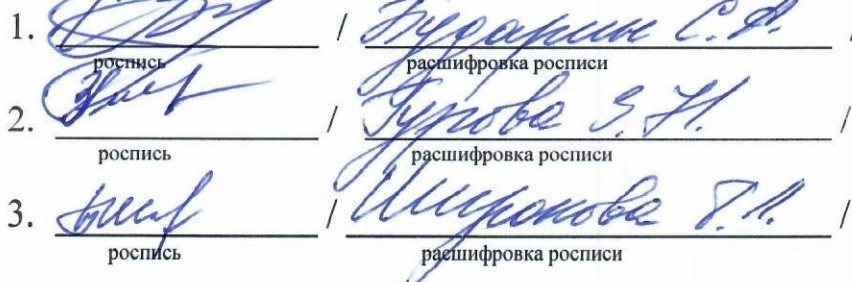 1. / Бударин С.А. /
роспись расшифровка росписи
2. / Гурова З.Н. /
роспись расшифровка росписи
3. / Широкова Т.А. /
роспись расшифровка росписи